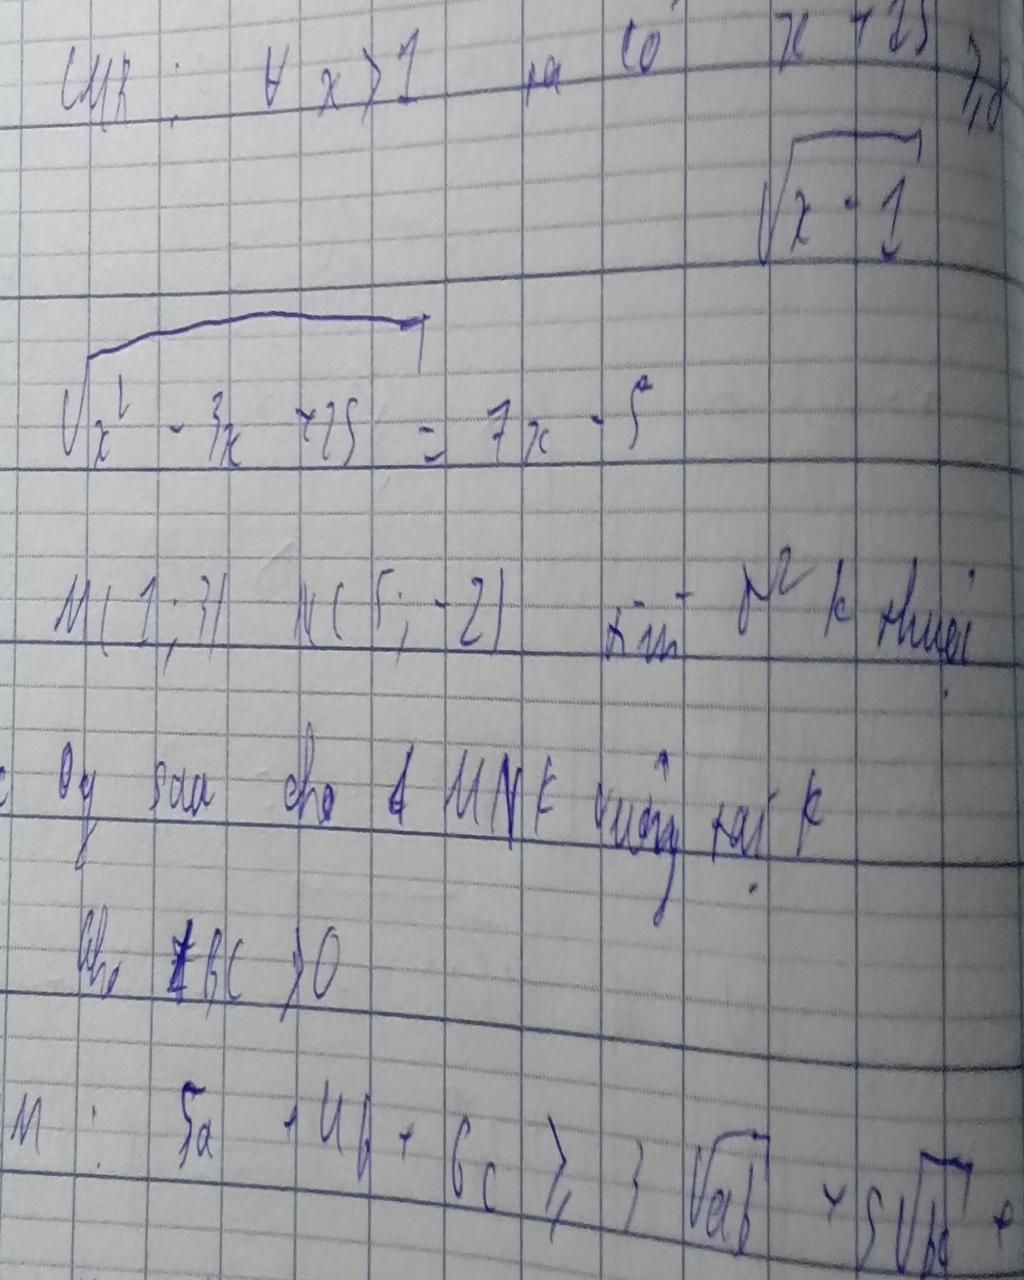 CMR : ∀ x > 1 ta có x + 25 ≥ 8
√x - 1
√x² - 3x + 25 = 7x - 5
M(1;3) N(5;-2) tìm k thuộc
Oy sao cho Δ MNK vuông tại k
Cho BC > 0
M : 5a + 4b + 6c ≥ 3√ab + 5√bc +